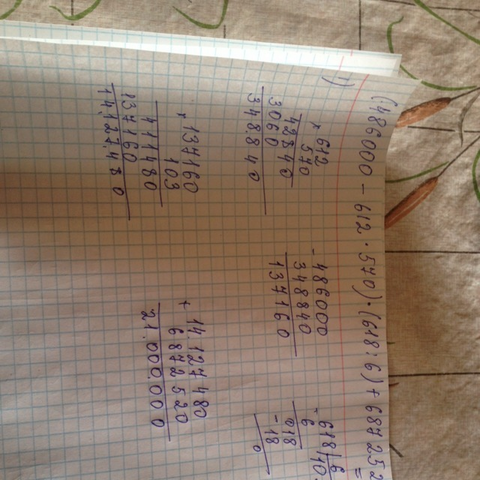 (486000 - 612 · 570) · (618 : 6) + 687252
=
1)
× 612
570
42840
3060
348840
- 486000
348840
137160
- 618 | 6
6 | 10
018
- 18
0
× 137160
103
411480
137160
14.127.480
+ 14.127480
6872520
21.000.000